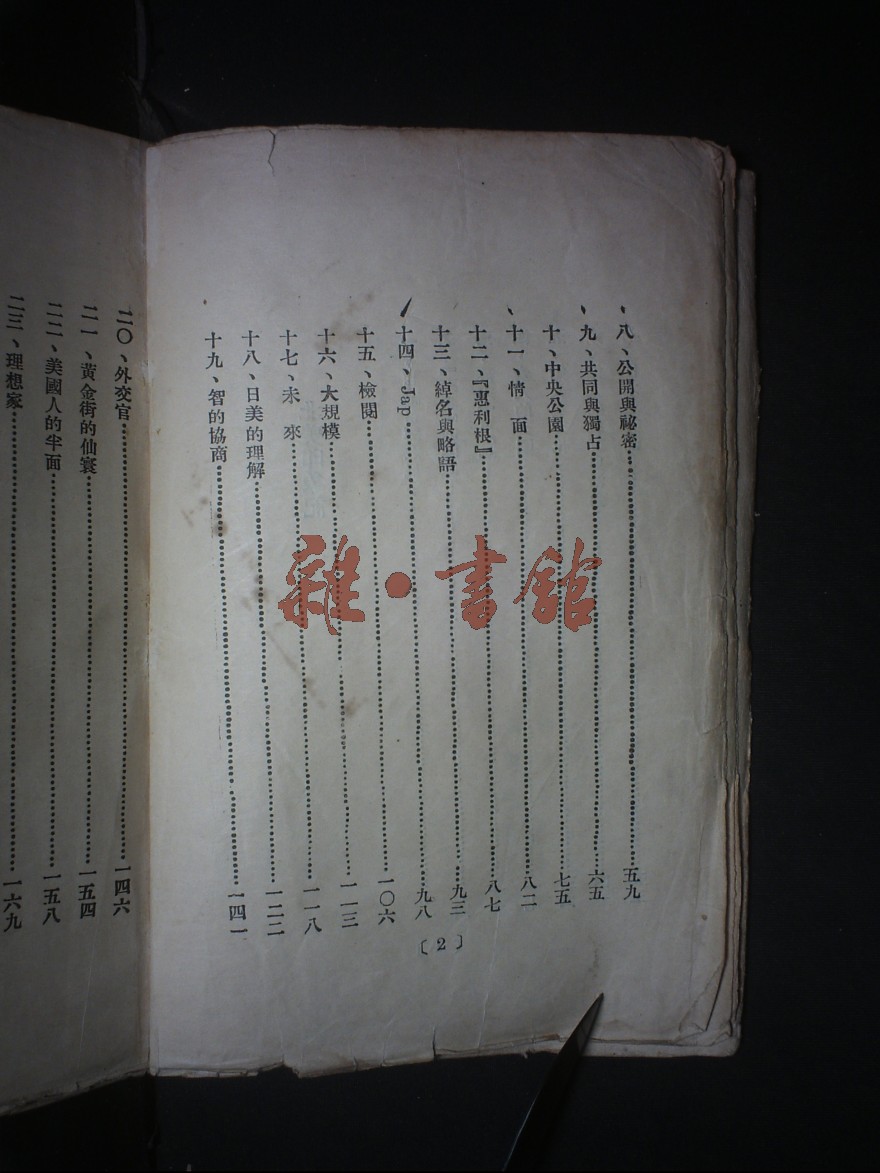 八、公開與祕密⋯⋯五九
九、共同與獨占⋯⋯六五
十、中央公園⋯⋯七五
十一、情　面⋯⋯八二
十二、『惠利根』⋯⋯八七
十三、綽名與略語⋯⋯九三
十四、Jap⋯⋯九八
十五、檢閱⋯⋯一〇六
十六、大規模⋯⋯一一三
十七、未　來⋯⋯一一八
十八、日美的理解⋯⋯一二二
十九、智的協商⋯⋯一四一
〔2〕
二〇、外交官⋯⋯一四六
二一、黃金街的仙寰⋯⋯一五四
二二、美國人的半面⋯⋯一五八
二三、理想家⋯⋯一六九
雜·書館